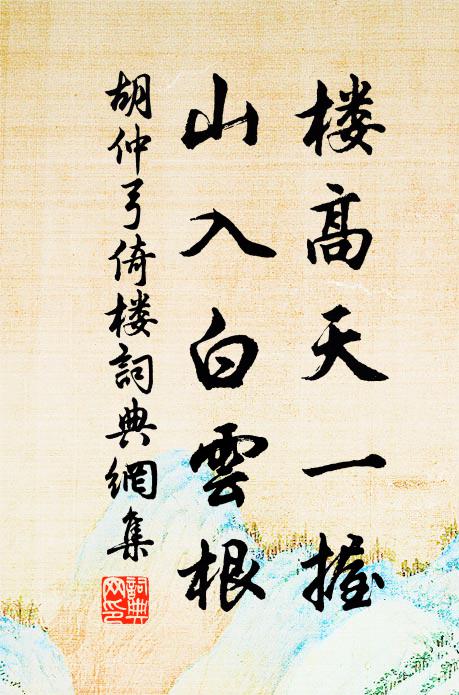 楼高天一握
山入白雲根
胡仲弓倚楼詞典網集
詞典网印